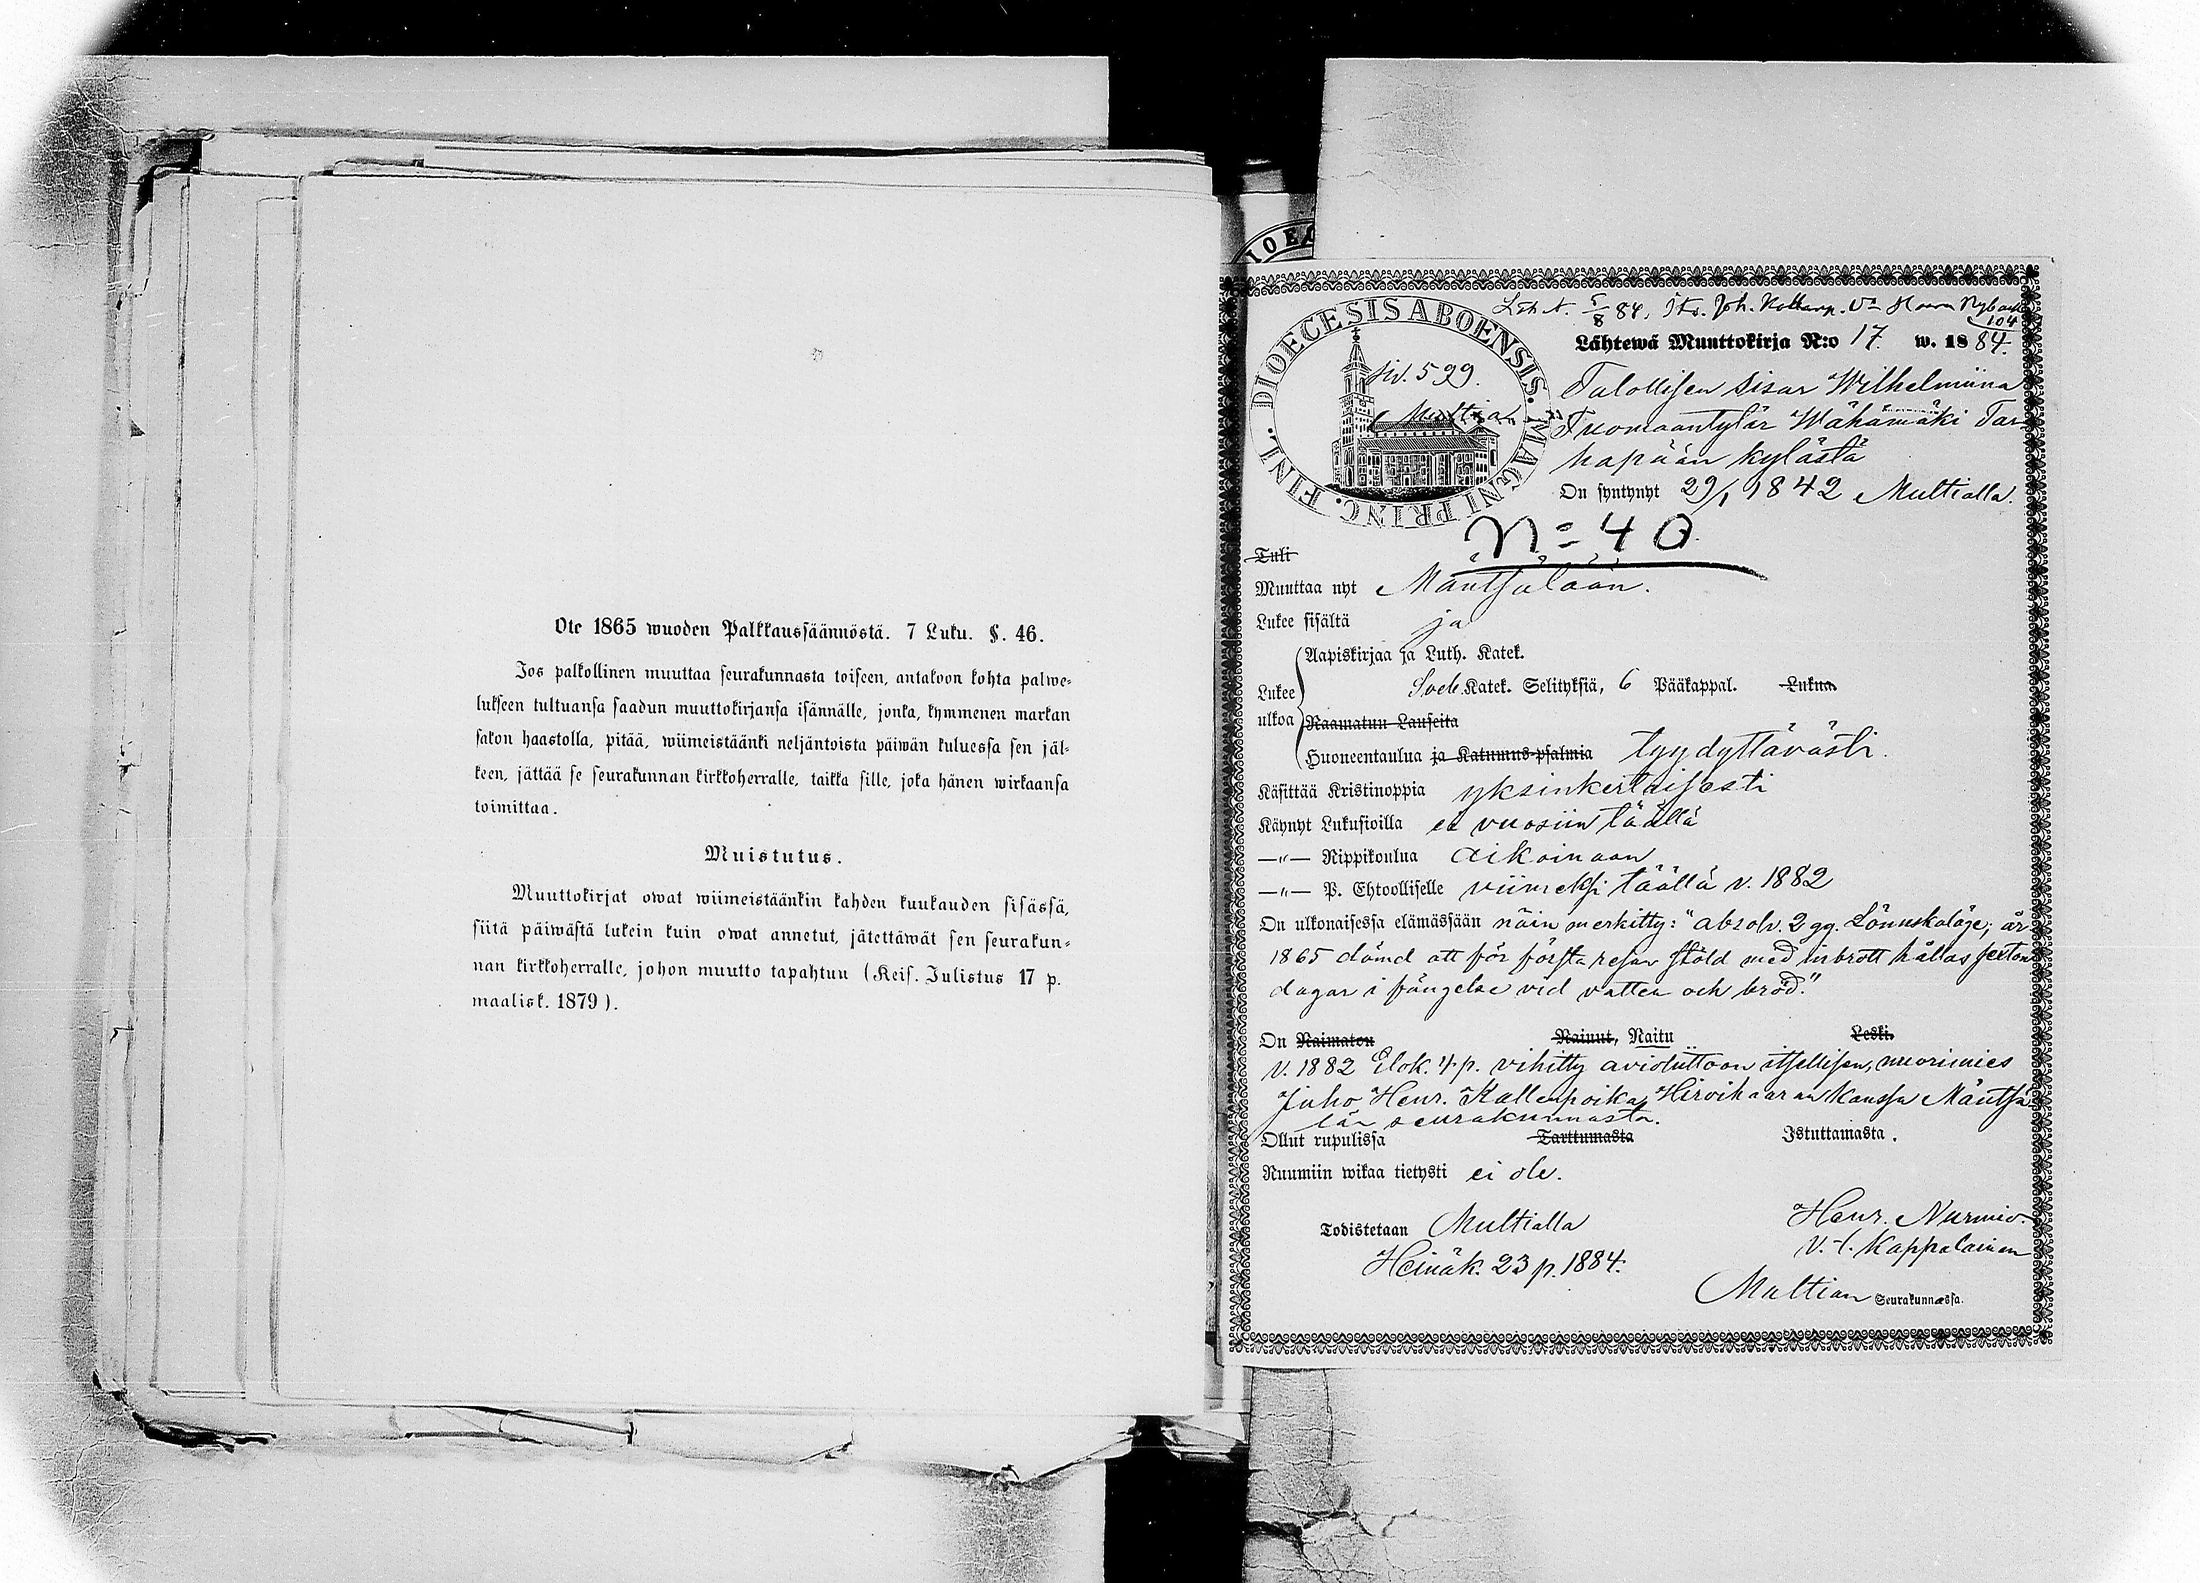 Ote 1865 wuoden Palkkaussäännöstä. 7 Luku. §. 46.
Jos palkollinen muuttaa seurakunnasta toiseen, antakoon kohta palwe-
lukseen tultuansa saadun muuttokirjansa isännälle, jonka, kymmenen markan
sakon haastolla, pitää, wiimeistäänki neljäntoista päiwän kuluessa sen jäl-
keen, jättää se seurakunnan kirkkoherralle, taikka sille, joka hänen wirkaansa
toimittaa.
Muistutus.
Muuttokirjat owat wiimeistäänkin kahden kuukauden sisässä,
siitä päiwästä lukein kuin owat annetut, jätettäwät sen seurakun-
nan kirkkoherralle, johon muutto tapahtuu (Keis. Julistus 17 p.
maalisk. 1879).
IOEC
5/8 84, Joh.
104
DIOECESIS ABOENSIS. MAGNI PRINC. FINL.
siv. 599.
Multian
Lähtewä Muuttokirja N:o 17. w. 1884.
Talollisen sisar Wilhelmiina
Tuomaantytär Wähämäki Tar
hapään kylästä
On syntynyt 29/1 1842 Multialla.
N= 40
Tuli
Muuttaa nyt Mäntsälään.
Lukee sisältä ja
Lukee ulkoa
Aapiskirjaa ja Luth. Katek.
Sveb. Katek. Selityksiä, 6 Pääkappal. Lukua.
Raamatun Lauseita
Huoneentaulua ja Katumus-psalmia tyydyttävästi.
Käsittää Kristinoppia yksinkertaisesti
Käynyt Lukusioilla ei vuosiin täällä
—"— Rippikoulua aikoinaan
—"— P. Ehtoolliselle viimeksi täällä v. 1882
On ulkonaisessa elämässään näin merkitty: "absolv. 2 gg. Lönnskaläge; år
1865 dömd att för första resan stöld med inbrott hållas sexton
dagar i fängelse vid vatten och bröd."
On Naimaton Nainut, Naitu Leski.
v. 1882 Elok. 4 p. vihitty avioliittoon itsellisen, nuorimies
Juho Henr. Kallenpoika Hirvihaaran kanssa Mäntsä
län seurakunnasta.
Ollut rupulissa Tarttumasta Istuttamasta.
Ruumiin wikaa tietysti ei ole.
Todistetaan Multialla
Heinäk. 23 p. 1884.
Henr. Nurmio.
V. t. Kappalainen
Multian Seurakunnassa.